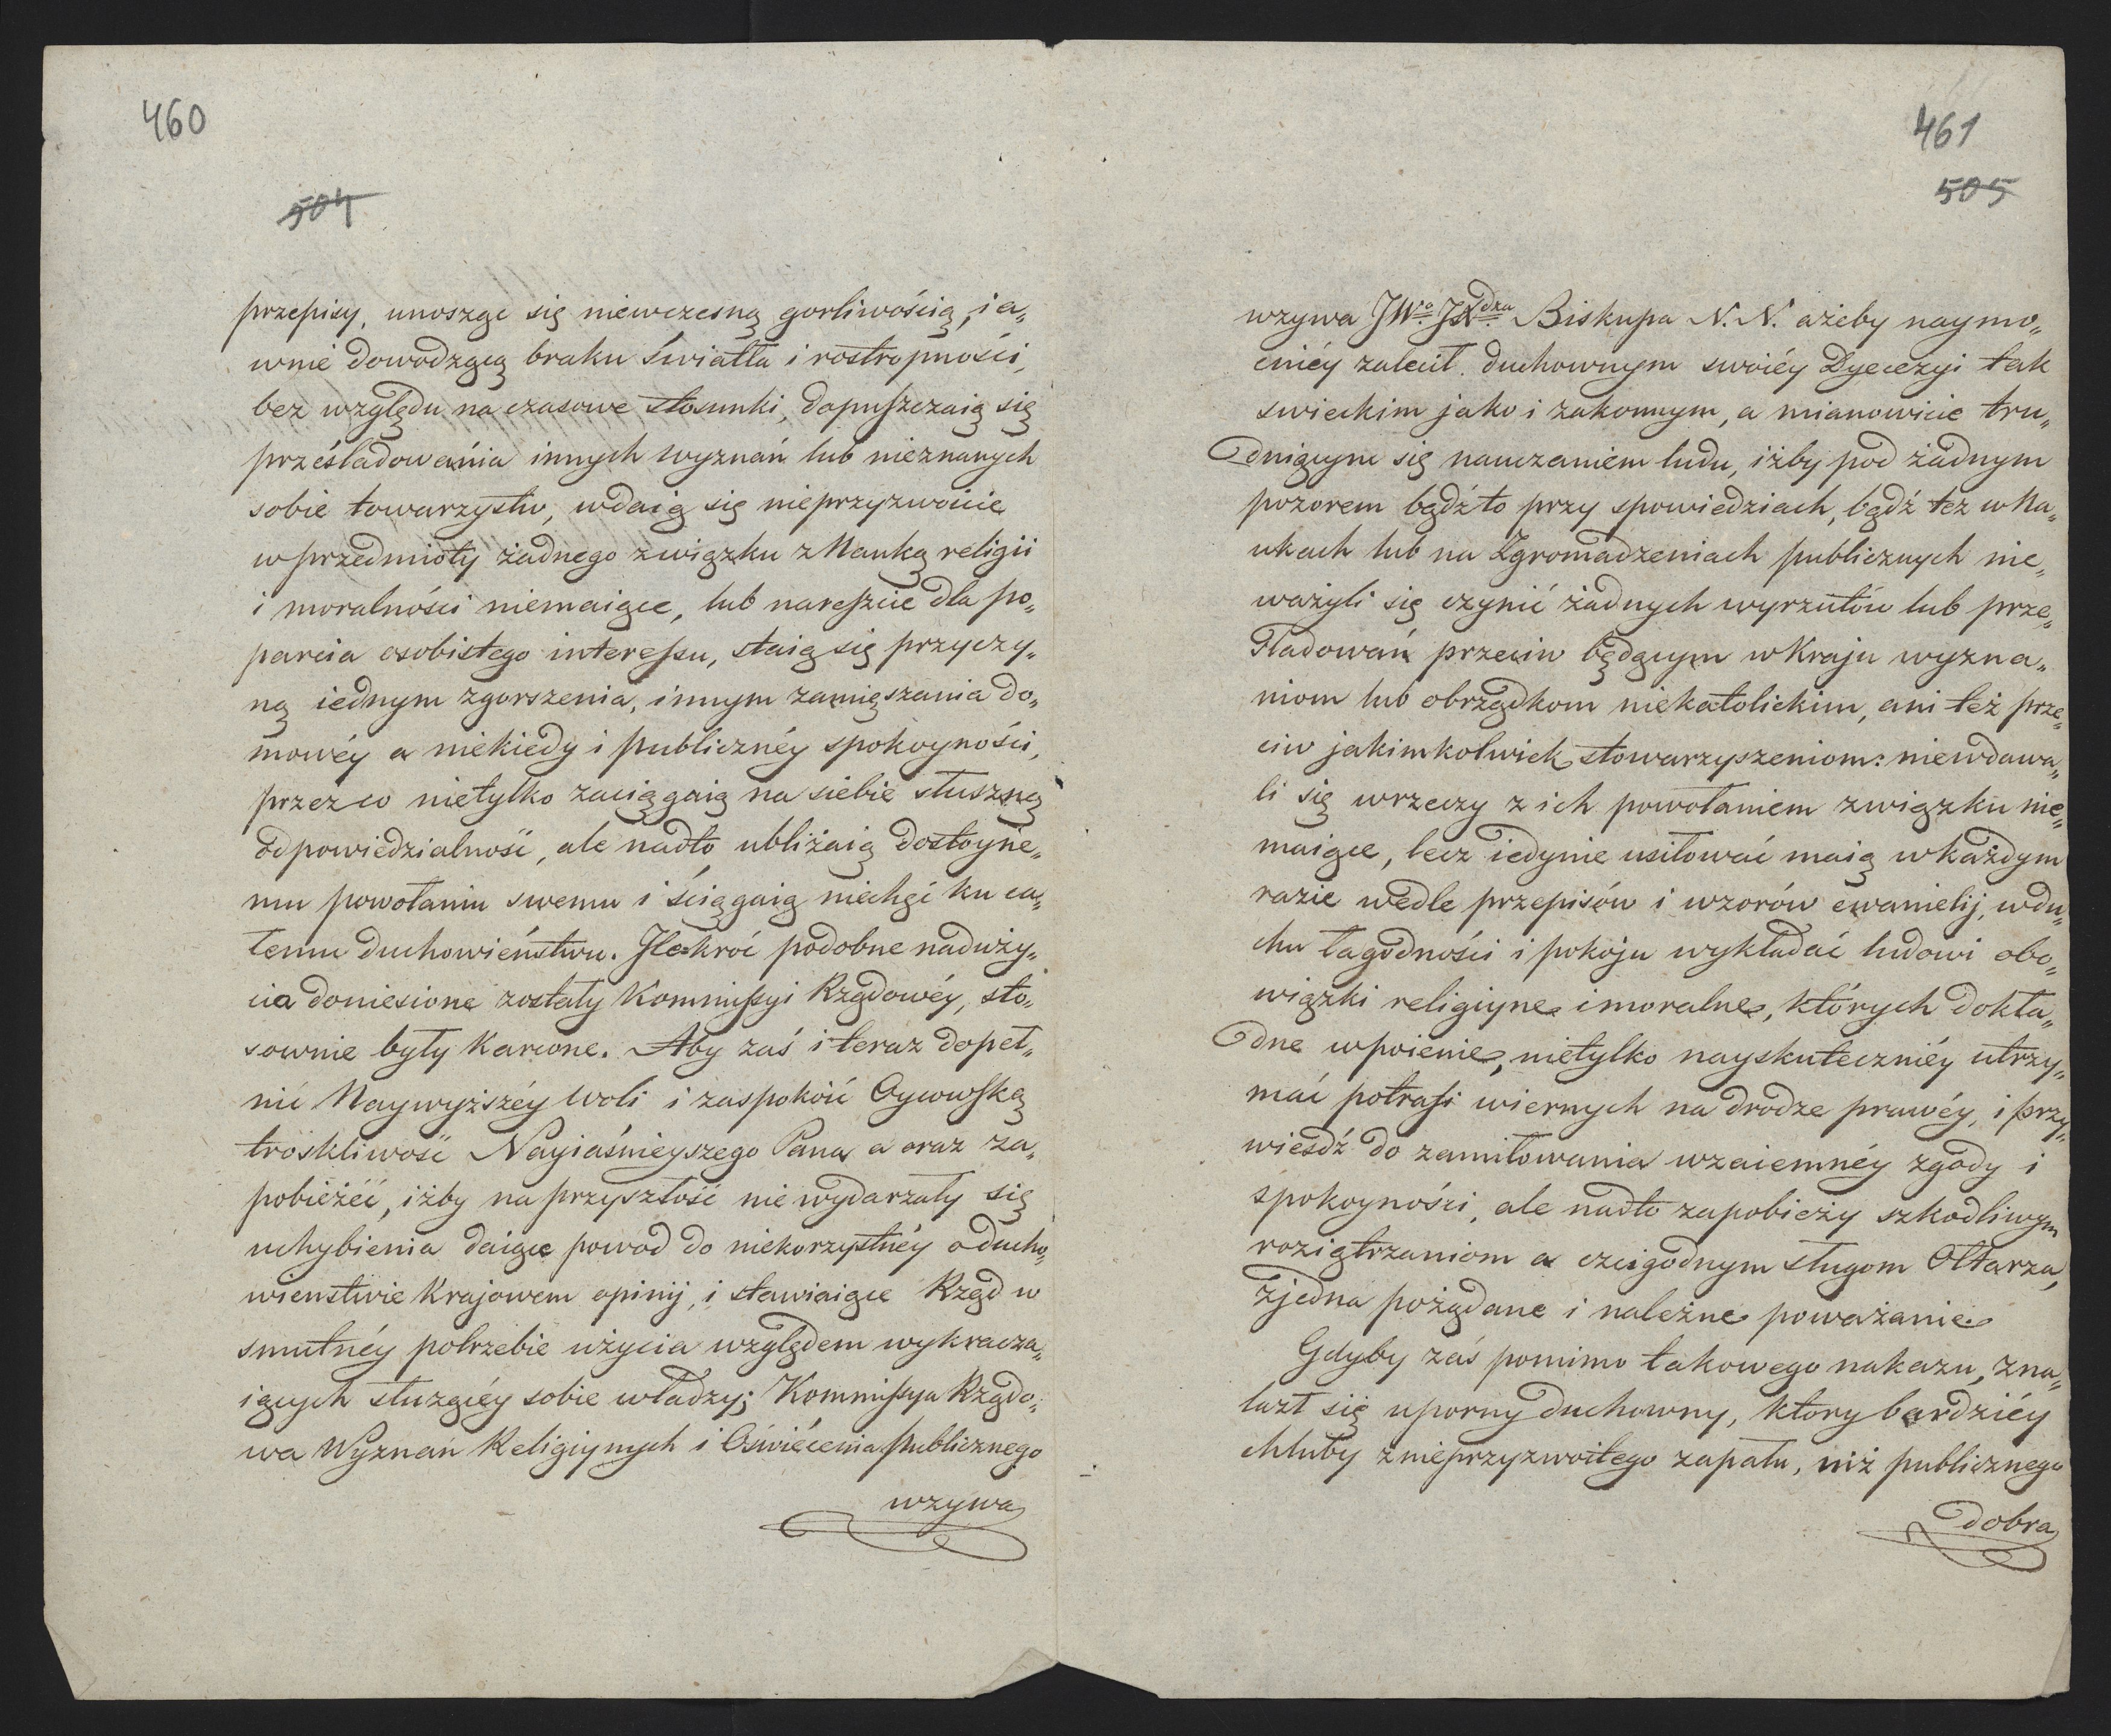 460
504
przepisy, unosząc się niewczesną gorliwością, ia„
wnie dowodzącą braku światła i rostropności,
bez względu na czasowe stosunki, dopuszczaią się
prześladowania innych wyznań lub nieznanych
sobie towarzystw, wdaią się nieprzyzwoicie
w przedmioty żadnego związku z Nauką religii
i moralności niemaiące, lub nareszcie dla po„
parcia osobistego interessu, staią się przyczy„
ną iednym zgorszenia, innym zamięszania do„
mowéy a niekiedy i publicznéy spokoyności,
przez co nietylko zaciągaią na siebie słuszną
odpowiedzialność, ale nadto ubliżaią dostoyne„
mu powołaniu swemu i ściągaią niechęć ku ca„
łemu duchowieństwu. Ilekroć podobne naduży„
cia doniesione zostały Kommissyi Rządowéy, sto„
sownie były karcone. Aby zaś i teraz dopeł„
nić Naywyższéy woli i zaspokoić Oycowską
troskliwość Nayiaśnieyszego Pana a oraz za„
pobieżéć, iżby na przyszłość nie wydarzały się
uchybienia daiące powód do niekorzystnéy o ducho„
wienstwie Krajowem opinij, i stawiaiące Rząd w
smutnéy potrzebie użycia względem wykracza„
iących służącéy sobie władzy; Kommissya Rządo„
wa Wyznań Religiynych i Oświécenia publicznego
wzywa
461
505
wzywa JWo. JXdza Biskupa N. N. ażeby naymo„
cniéy zalecił duchownym swoiéy Dyecezyi tak
swieckim jako i zakonnym, a mianowicie tru„
dniącym się nauczaniem ludu, iżby pod żadnym
pozorem bądźto przy spowiedziach, bądź też w Na„
ukach lub na Zgromadzeniach publicznych nie„
ważyli się czynić żadnych wyrzutów lub prze„
śladowań przeciw będącym w Kraju wyzna„
niom lub obrządkom niekatolickim, ani też prze„
ciw jakimkolwiek stowarzyszeniom: niewdawa„
li się w rzeczy z ich powołaniem związku nie„
maiące, lecz iedynie usiłować maią w każdym
razie wedle przepisów i wzorów ewanielij, w du„
chu łagodności i pokoju wykładać ludowi obo„
wiązki religiyne i moralne, których dokła„
dne wpoienie, nietylko nayskuteczniéy utrzy„
mać potrafi wiernych na drodze prawéy, i przy„
wieśdź do zamiłowania wzaiemnéy zgody i
spokoyności, ale nadto zapobieży szkodliwym
roziątrzaniom a czcigodnym sługom Ołtarza,
zjedna pożądane i należne poważanie
Gdyby zaś pomimo takowego nakazu, zna„
lazł się uporny duchowny, który bardziéy
chluby z nieprzyzwoitego zapału, niż publicznego
dobra